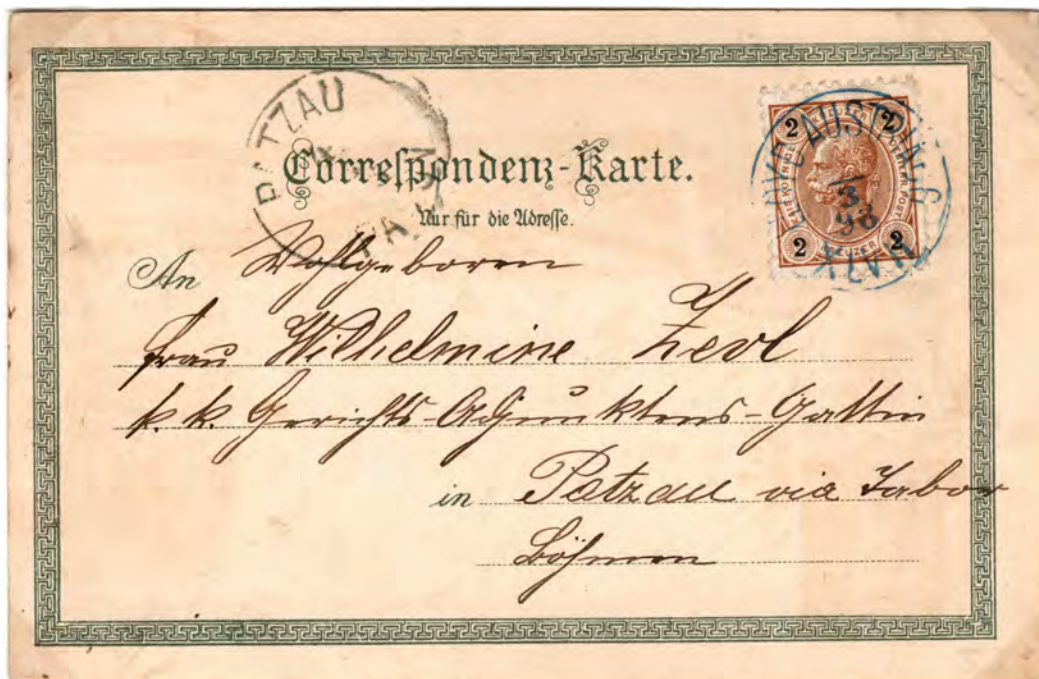 PATZAU
PA
Correspondenz-Karte.
Nur für die Adresse.
2 2
3
98
2 2
An Wohlgeboren
Frau Wilhelmine Zerl
k. k. Gerichts-Adjunktens-Gattin
in Patzau via Tabor
Böhmen